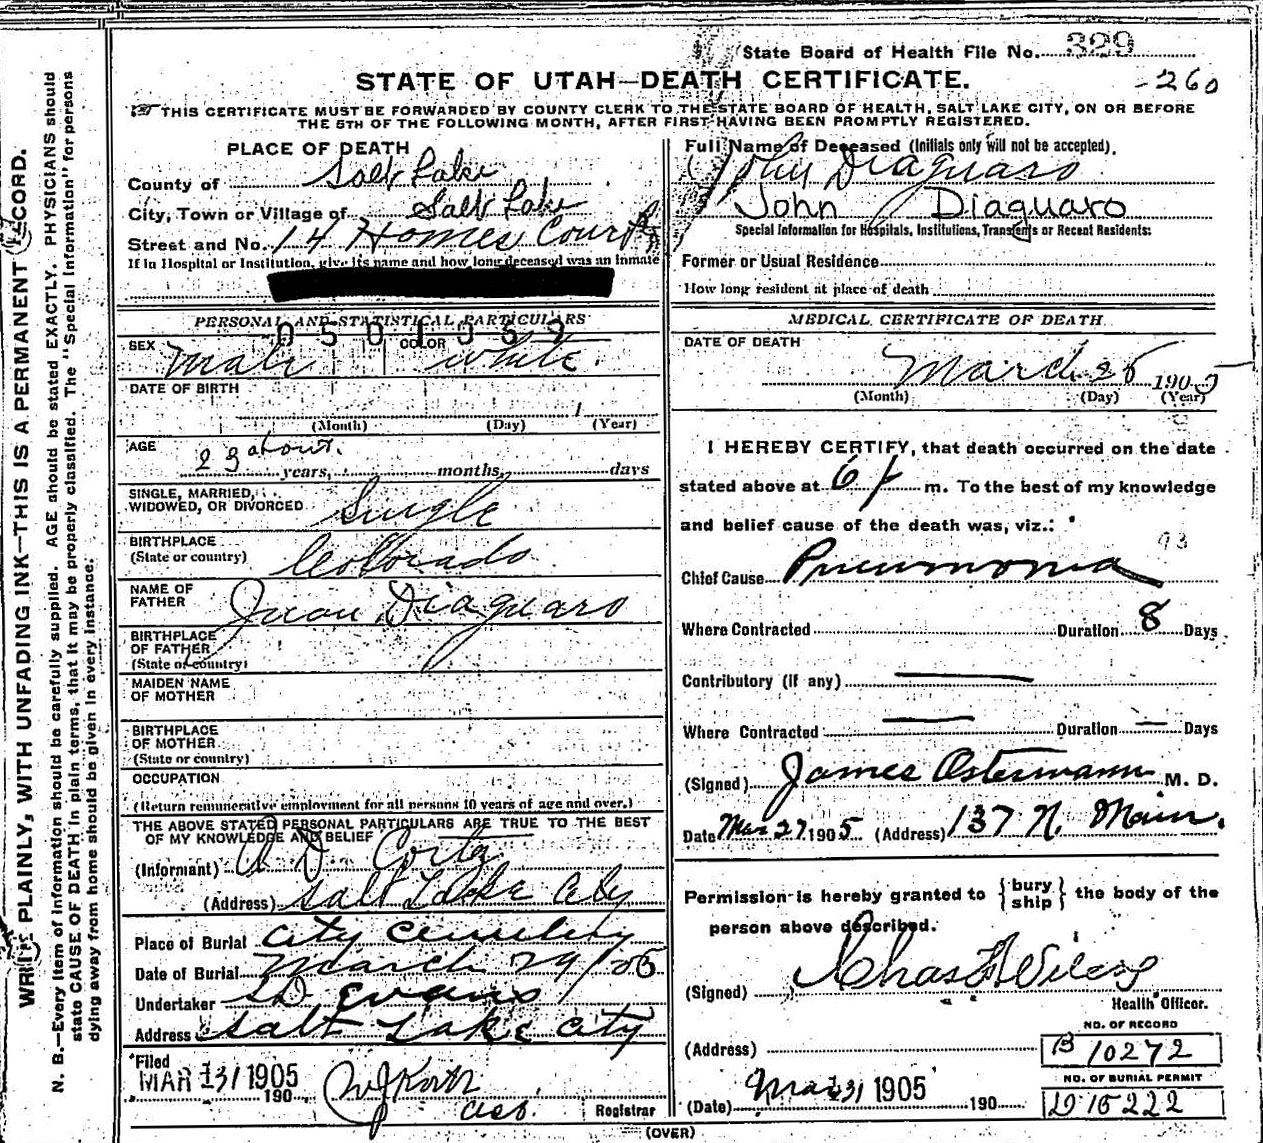 WRITE PLAINLY, WITH UNFADING INK—THIS IS A PERMANENT RECORD.
N. B.—Every item of information should be carefully supplied. AGE should be stated EXACTLY. PHYSICIANS should
state CAUSE OF DEATH in plain terms, that it may be properly classified. The "Special Information" for persons
dying away from home should be given in every instance.
State Board of Health File No. 329
STATE OF UTAH—DEATH CERTIFICATE.
-260
THIS CERTIFICATE MUST BE FORWARDED BY COUNTY CLERK TO THE STATE BOARD OF HEALTH, SALT LAKE CITY, ON OR BEFORE
THE 5TH OF THE FOLLOWING MONTH, AFTER FIRST HAVING BEEN PROMPTLY REGISTERED.
PLACE OF DEATH
County of Salt Lake
City, Town or Village of Salt Lake
Street and No. 14 Homes Court
If in Hospital or Institution, give its name and how long deceased was an inmate
PERSONAL AND STATISTICAL PARTICULARS
0501059
SEX Male COLOR White.
DATE OF BIRTH
1
(Month) (Day) (Year)
AGE
23 about. years, months, days
SINGLE, MARRIED,
WIDOWED, OR DIVORCED Single
BIRTHPLACE
(State or country) Collorado
NAME OF
FATHER Juan Diaguaro
BIRTHPLACE
OF FATHER
(State or country)
MAIDEN NAME
OF MOTHER
BIRTHPLACE
OF MOTHER
(State or country)
OCCUPATION
(Return remunerative employment for all persons 10 years of age and over.)
THE ABOVE STATED PERSONAL PARTICULARS ARE TRUE TO THE BEST
OF MY KNOWLEDGE AND BELIEF
(Informant) A D. Cortez
(Address) Salt Lake City
Place of Burial City Cemetery
Date of Burial March 29/05
Undertaker S D Evans
Address Salt Lake City
Filed
MAR 31 1905
190
Registrar
Full Name of Deceased (Initials only will not be accepted).
John Diaguaro
John Diaguaro
Special Information for Hospitals, Institutions, Transients or Recent Residents:
Former or Usual Residence
How long resident at place of death
MEDICAL CERTIFICATE OF DEATH
DATE OF DEATH
March 26 1905
(Month) (Day) (Year)
I HEREBY CERTIFY, that death occurred on the date
stated above at 6 P m. To the best of my knowledge
and belief cause of the death was, viz.:
93
Chief Cause Pneumonia
Where Contracted Duration 8 Days
Contributory (if any) —
Where Contracted — Duration — Days
(Signed) James Ostermann M. D.
Date Mar 27 1905 (Address) 137 N. Main.
Permission is hereby granted to {bury ship} the body of the
person above described.
(Signed) Chas
Health Officer.
NO. OF RECORD
(Address) B 10272
NO. OF BURIAL PERMIT
(Date) Mar 31 1905 190 D 15222
(OVER)